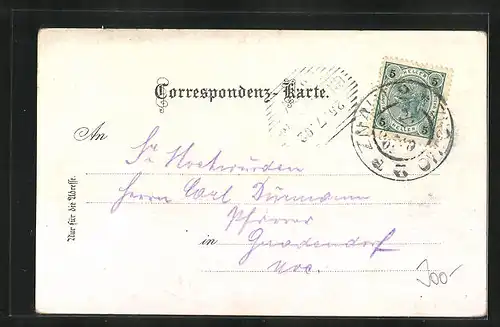 Correspondenz-Karte.
An
Sr. Hochwürden
Herrn Carl Dürmann
Pfarrer
in Gnadendorf
N.Oe.
Nur für die Adresse.
5 5
HELLER
5 5
ZNAIM
25.7.02